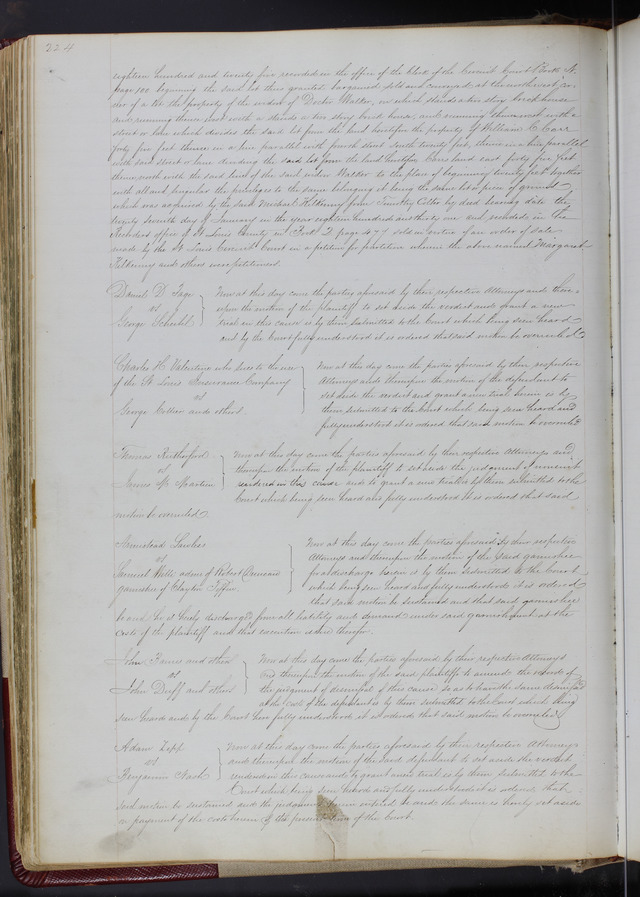 224
eighteen hundred and twenty five recorded in the office of the Clerk of the Circuit Court Book N.
page 100 beginning the said lot thus granted bargained sold and conveyed at the northwest cor
ner of a lot the property of the widow of Doctor Walker, on which stands a two story brick house
and running thence west with a stands a two story brick house, and running thence west with a
street or lane which divides the said lot from the land heretofore the property of William C. Carr
forty five feet thence in a line parallel with fourth street South twenty feet, thence in a line parallel
with said street or lane dividing the said lot from the land heretofore Carrs land east forty five feet
thence north with the said land of the said widow Walker to the place of beginning twenty feet together
with all and singular the privileges to the same belonging it being the same lot or piece of ground
which was acquired by the said Michael Kilkenny from Timothy Colter by deed bearing date the
twenty seventh day of January in the year eighteen hundred and thirty and recorded in the
Recorders office of St Louis County in Book Q page 477 sold in virtue of an order of sale
made by the St Louis Circuit Court on a petition for partition wherein the above named Margaret
Kilkenny and others were petitioners.
Daniel D. Page
vs
George Scheibel
Now at this day come the parties aforesaid by their respective Attorneys and there
upon the motion of the plaintiff to set aside the verdict and grant a new
trial in this cause is by them submitted to the Court which being seen heard
and by the Court fully understood it is ordered that said motion be overruled
Charles H. Valentine who sues to the use
of the St Louis Insurance Company
vs
George Collier and others.
Now at this day come the parties aforesaid by their respective
Attorneys and thereupon the motion of the defendant to
set aside the verdict and grant a new trial herein is by
them submitted to the Court which being seen heard and
fully understood it is ordered that said motion be overruled
Thomas Rutherford
vs
James W. Martin
Now at this day come the parties aforesaid by their respective Attorneys and
thereupon the motion of the plaintiff to set aside the judgment of nonsuit
rendered in this cause and to grant a new trial is by them submitted to the
Court which being seen heard and fully understood it is ordered that said
motion be overruled
vs
Samuel Willi admr of Robert Duncan
garnishee of Clayton Tiffin.
Now at this day come the parties aforesaid by their respective
Attorneys and thereupon the motion of the said garnishee
for a discharge herein is by them submitted to the Court
which being seen heard and fully understood it is ordered
that said motion be sustained and that said garnishee
be and he is hereby discharged from all liability and demand under said garnishment at the
costs of the plaintiff and that execution issue therefor.
John and others
vs
John Duff and others
Now at this day come the parties aforesaid by their respective Attorneys
and thereupon the motion of the said plaintiffs to amend the record of
the judgment of dismissal of this cause so as to have the same dismissed
at the cost of the defendant is by them submitted to the Court which being
seen heard and by the Court here fully understood it is ordered that said motion be overruled
Adam Zepp
vs
Benjamin Nash
Now at this day come the parties aforesaid by their respective Attorneys
and thereupon the motion of the said defendant to set aside the verdict
rendered in this cause and to grant a new trial is by them submitted to the
Court which being seen heard and fully understood it is ordered that
said motion be sustained and the judgment herein entered be and the same is hereby set aside
on payment of the costs herein of the present term of the Court.